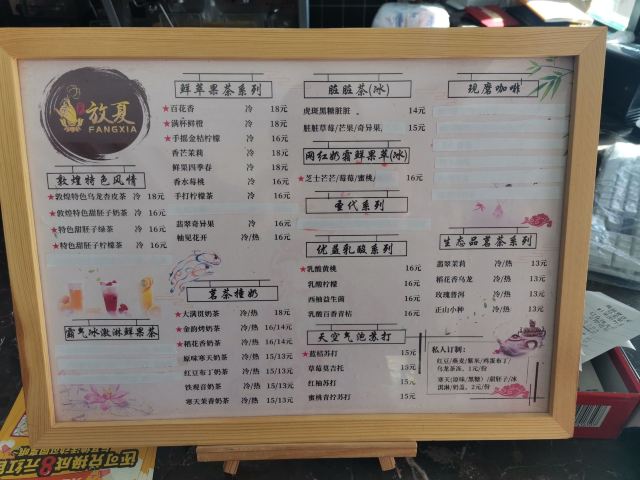 放夏
FANGXIA
敦煌特色风情
★敦煌特色乌龙杏皮茶 冷 18元
★敦煌特色甜胚子奶茶 冷 16元
★特色甜胚子绿茶 冷 16元
★特色甜胚子柠檬茶 冷 16元
霸气冰激淋鲜果茶
鲜萃果茶系列
★百花香 冷 18元
★满杯鲜橙 冷 18元
★手摇金桔柠檬 冷 16元
香芒茉莉 冷 18元
鲜果四季春 冷 18元
香水莓桃 冷 16元
手打柠檬茶 冷 16元
翡翠奇异果 冷 16元
柚见花开 冷/热 16元
茗茶撞奶
★大满贯奶茶 冷/热 18元
★金韵烤奶茶 冷/热 16/14元
★稻花香奶茶 冷/热 16/14元
原味寒天奶茶 冷/热 15/13元
红豆布丁奶茶 冷/热 15/13元
铁观音奶茶 冷/热 15/13元
寒天茉香奶茶 冷/热 15/13元
脏脏茶(冰)
虎斑黑糖脏脏 14元
脏脏草莓/芒果/奇异果 15元
网红奶霜鲜果萃(冰)
★芝士芒芒/莓莓/蜜桃 16元
圣代系列
优益乳酸系列
★乳酸黄桃 16元
乳酸柠檬 16元
西柚益生菌 16元
乳酸百香青桔 16元
天空气泡苏打
★蓝桔苏打 15元
草莓莫吉托 15元
红柚苏打 15元
蜜桃青柠苏打 15元
现磨咖啡
生态品茗茶系列
翡翠茉莉 冷/热 13元
稻花香乌龙 冷/热 13元
玫瑰普洱 冷/热 13元
正山小种 冷/热 13元
私人订制:
红豆/燕麦/紫米/鸡蛋布丁/
乌龙茶冻, 1元/份
寒天(原味/黑糖)/甜胚子/冰
淇淋/奶盖, 2元/份
还可兑换成8元红